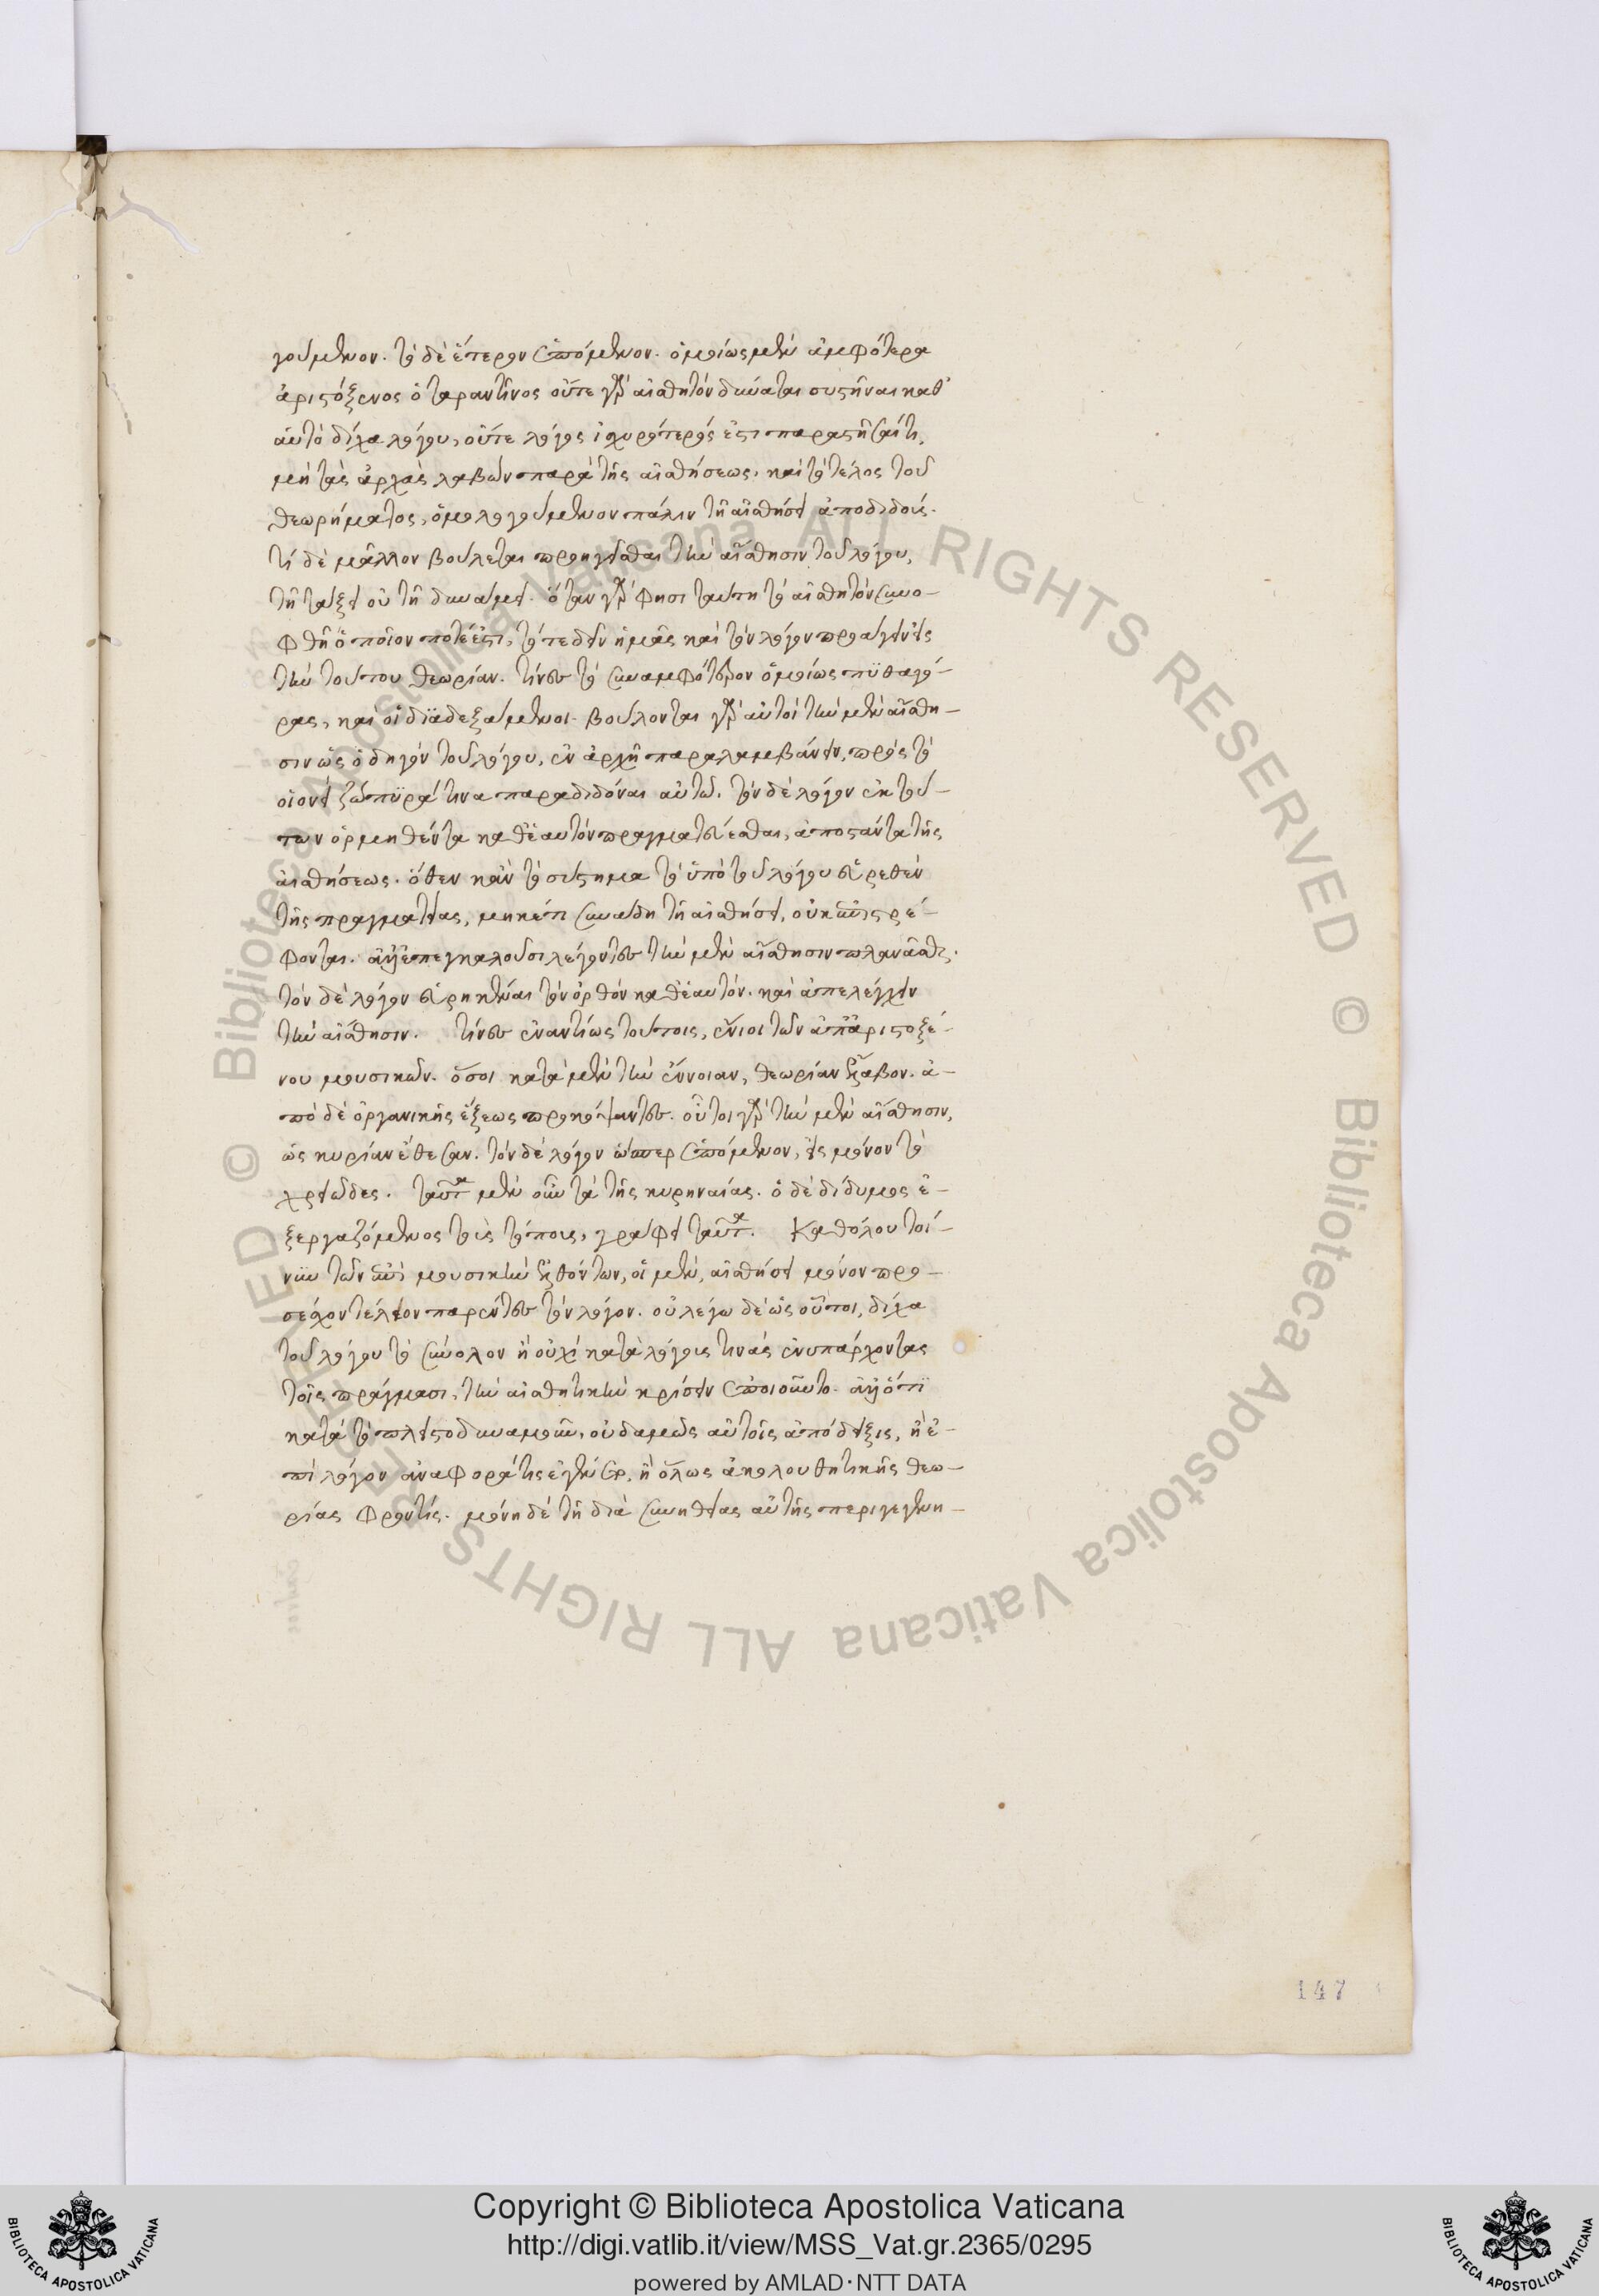 γούμενον. τὸ δὲ ἕτερον ἑπόμενον. ὁμοίως μὲν ἀμφότερα
ἀριστόξενος ὁ ταραντῖνος οὔτε γὰρ αἰσθητὸν δύναται συστῆναι καθ'
αὑτὸ δίχα λόγου, οὔτε λόγος ἰσχυρότερός ἐστι παραστῆσαί τι,
μὴ τὰς ἀρχὰς λαβὼν παρὰ τῆς αἰσθήσεως, καὶ τὸ τέλος τοῦ
θεωρήματος, ὁμολογούμενον πάλιν τῇ αἰσθήσει ἀποδιδούς.
τί δὲ μᾶλλον βούλεται προηγεῖσθαι τὴν αἴσθησιν τοῦ λόγου,
τῇ τάξει οὐ τῇ δυνάμει. ὅταν γάρ φησι ταύτῃ τὸ αἰσθητὸν συνο-
φθῇ ὁποῖον ποτέ ἐστι, τότε δεῖν ἡμᾶς καὶ τὸν λόγον προάγειν εἰς
τὴν τούτου θεωρίαν. τίνες τὸ συναμφότερον ὁμοίως πϋθαγό-
ρας, καὶ οἱ διαδεξάμενοι. βούλονται γὰρ αὐτοὶ τὴν μὲν αἴσθη-
σιν ὡς ὁδηγὸν τοῦ λόγου, ἐν ἀρχῇ παραλαμβάνειν, πρὸς τὸ
οἱονεὶ ζώπϋρά τινα παραδιδόναι αὐτῷ. τὸν δὲ λόγον ἐκ τού-
των ὁρμηθέντα καθ' ἑαυτὸν πραγματεύεσθαι, ἀποστάντα τῆς
αἰσθήσεως. ὅθεν κἂν τὸ σύστημα τὸ ὑπὸ τοῦ λόγου εὑρεθὲν
τῆς πραγματείας, μηκέτι συνάδῃ τῇ αἰσθήσει, οὐκ ἐπιστρέ-
φονται. ἀλλ' ἔτι ἐπεγκαλοῦσι λέγοντες τὴν μὲν αἴσθησιν πλανᾶσθαι.
τὸν δὲ λόγον εὑρηκέναι τὸν ὀρθὸν καθ' ἑαυτόν. καὶ ἀπελέγχειν
τὴν αἴσθησιν. τίνες ἐναντίως τούτοις, ἔνιοι τῶν ἀπ' ἀριστοξέ-
νου μουσικῶν. ὅσοι κατὰ μὲν τὴν ἔννοιαν, θεωρίαν ἔλαβον. ἀ-
πὸ δὲ ὀργανικῆς ἕξεως προκόψαντες. οὗτοι γὰρ τὴν μὲν αἴσθησιν,
ὡς κυρίαν ἔθεσαν. τὸν δὲ λόγον ὥσπερ ἑπόμενον, εἰς μόνον τὸ
χρειῶδες. ταῦτα μὲν οὖν τὰ τῆς κυρηναίας. ὁ δὲ δίδυμος ἐ-
ξεργαζόμενος τοὺς τόπους, γράφει ταῦτα. Καθόλου τοί-
νυν τῶν ἐπὶ μουσικὴν ἐλθόντων, οἱ μὲν, αἰσθήσει μόνον προ-
σέχον τέλειον παρέντες τὸν λόγον. οὐ λέγω δὲ ὡς οὗτοι, δίχα
τοῦ λόγου τὸ σύνολον ἢ οὐχὶ κατὰ λόγους τινὰς ἐνυπάρχοντας
τοῖς πράγμασι, τὴν αἰσθητικὴν κρίσιν ἐποιοῦντο. ἀλλ' ὅτι
κατὰ τὸ πλεῖστο δυναμοῦν, οὐδαμῶς αὐτοῖς ἀπόδειξις, ἢ ἐ-
πὶ λόγον ἀναφορά τις ἐγένετο, ἢ ὅλως ἀκολουθητικῆς θεω-
ρίας φροντίς. μόνῃ δὲ τῇ διὰ συνηθείας αὐτῆς περιγεγενη-
147
Copyright © Biblioteca Apostolica Vaticana
http://digi.vatlib.it/view/MSS_Vat.gr.2365/0295
powered by AMLAD·NTT DATA
BIBLIOTECA APOSTOLICA VATICANA
BIBLIOTECA APOSTOLICA VATICANA
© Biblioteca Apostolica Vaticana ALL RIGHTS RESERVED © Biblioteca Apostolica Vaticana ALL RIGHTS RESERVED